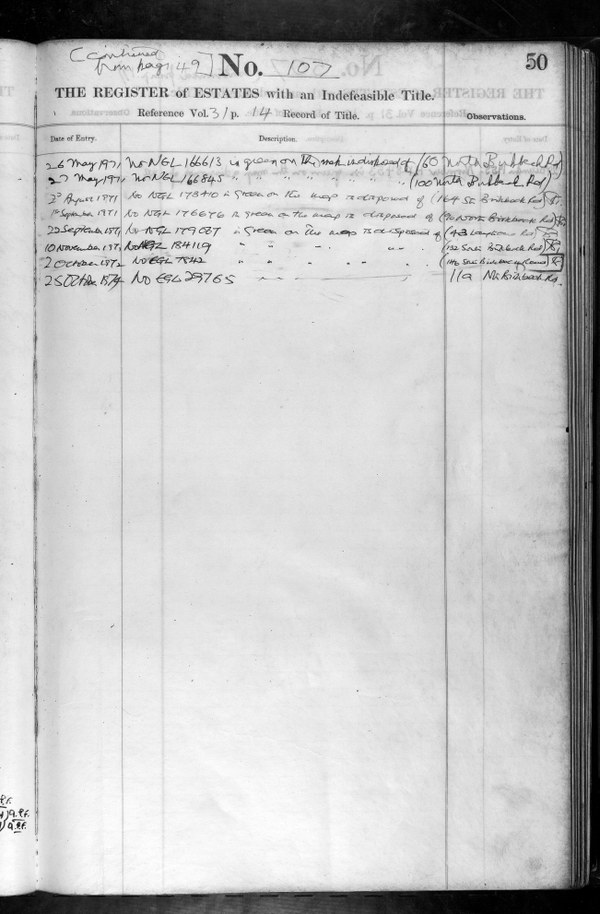 [Continued
from page 49] No. 107
50
THE REGISTER of ESTATES with an Indefeasible Title.
Reference Vol. 31 p. 14 Record of Title.
Observations.
Date of Entry.
Description.
26 May 1971 No NGL 166613 is green on the map is disposed of (60 North Birkbeck Rd)
27 May 1971 No NGL 166845 " " " " " " " (100 North Birkbeck Rd)
3rd August 1971 No NGL 173410 is green on the map is disposed of (164 Sth Birkbeck Rd)
1st September 1971 No NGL 176676 is green on the map is disposed of (90 North Birkbeck Rd)
22 September 1971 No NGL 179687 is green on the map is disposed of (43 Rd)
10 November 1971 No NGL 184119 " " " " (132 South Birkbeck Rd)
2 October 1972 No EGL 7842 " " " " (146 Sth Birkbeck Road)
25 October 1974 No EGL 29765 11a Nth Birkbeck Rd.